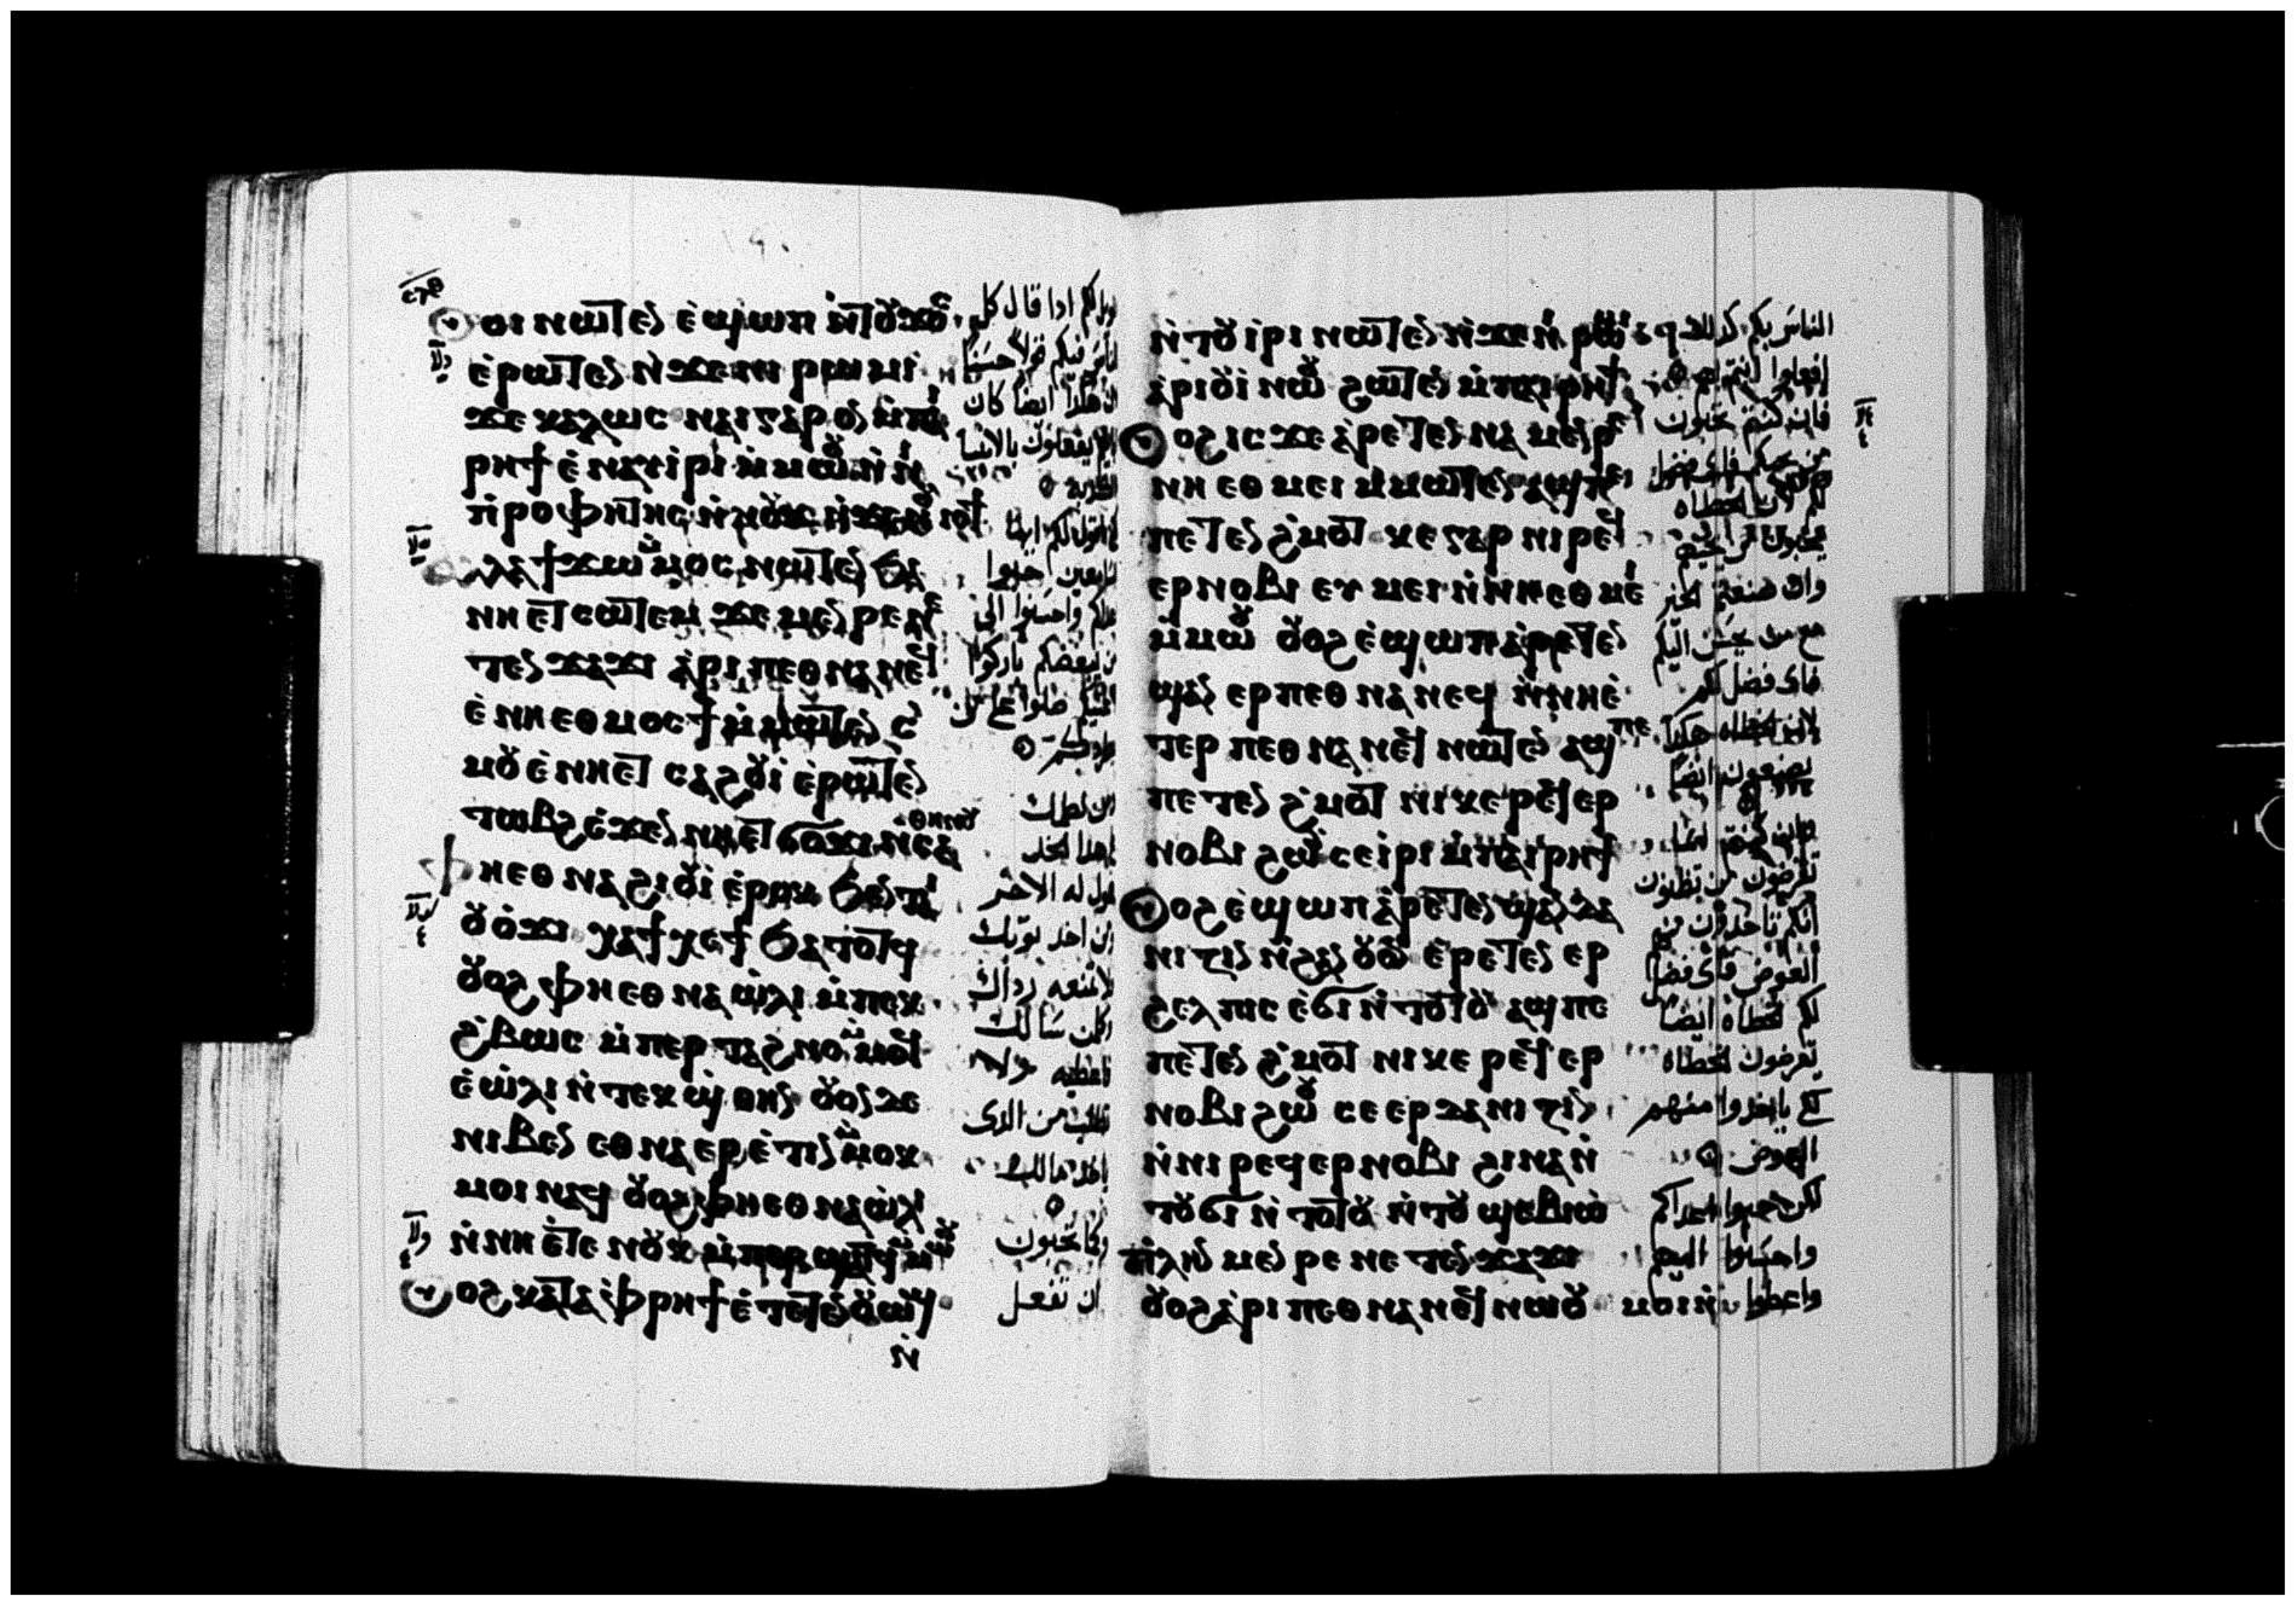 ⲟⲓ ⲛⲱⲧⲉⲛ ⲉ̀ϣⲱⲡ ⲛ̀ⲧⲟⲩϫⲟⲥ
ⲉ̀ⲣⲱⲧⲉⲛ ⲛ̀ϫⲉⲛⲓ ⲣⲱⲙⲓ
ϫⲉ ⲕⲁⲗⲱⲥ ⲛⲁⲓ ⲅⲁⲣ ⲟⲛ ⲙ̀ⲡⲁⲓ
ⲣⲏϯ ⲉ̀ⲛⲁⲩⲓⲣⲓ ⲙ̀ⲙⲱⲟⲩ ⲛ̀ⲛⲓ
ⲡⲣⲟⲫⲏⲧⲏⲥ ⲛ̀ⲛⲟⲩϫ ⲛ̀ϫⲉ ⲛⲟⲩⲓⲟϯ
ⲁⲗⲗⲁ ϯϫⲱ ⲙ̀ⲙⲟⲥ ⲛⲱⲧⲉⲛ ϧⲁ
ⲛⲏ ⲉⲧⲥⲱⲧⲉⲙ ϫⲉ ⲙⲉⲛⲣⲉ ⲛⲉ
ⲧⲉⲛϫⲁϫⲓ ⲁ̀ⲣⲓ ⲡⲉⲑⲛⲁⲛⲉϥ
ⲉ̀ⲛⲏ ⲉⲑⲙⲟⲥϯ ⲙ̀ⲙⲱⲧⲉⲛ ⲥ
ⲙⲟⲩ ⲉ̀ⲛⲏ ⲉⲧ ⲥⲁϩⲟⲩⲓ ⲉ̀ⲣⲱⲧⲉⲛ
ⲧⲱⲃϩ ⲉ̀ϫⲉⲛ ⲛⲏ ⲉⲧϭⲟϫⲓ ⲛ̀ⲥⲁ ⲑⲏⲛⲟⲩ
ⲫⲏ ⲉⲑⲛⲁϩⲓⲟⲩⲓ ⲉ̀ⲣⲟⲕ ϧⲉⲛ ⲧⲁⲓ
ⲟⲩⲟ̀ϫⲓ ⲭⲁ ϯⲭⲉϯ ϧⲁⲧⲟⲧϥ
ⲟⲩⲟϩ ⲫⲏ ⲉⲑⲛⲁⲱ̀ⲗⲓ ⲙ̀ⲡⲉⲕ
ϩ̀ⲃⲱⲥ ⲙ̀ⲡⲉⲣⲧⲁϩⲛⲟ ⲙ̀ⲙⲟϥ
ⲉ̀ⲱ̀ⲗⲓ ⲛ̀ⲧⲉⲕϣ̀ⲑⲏⲛ ⲟⲩⲟⲛ ⲇⲉ
ⲛⲓⲃⲉⲛ ⲉⲑⲛⲁⲉⲣⲉ̀ⲧⲓⲛ ⲙ̀ⲙⲟⲕ
ⲙⲟⲓ ⲛⲁϥ ⲟⲩⲟϩ ⲫⲏ ⲉⲑⲛⲁⲱ̀ⲗⲓ
ⲛ̀ⲛⲏ ⲉ̀ⲧⲉ ⲛⲟⲩⲕ ⲙ̀ⲡⲉⲣϣⲁⲧϥ ⲙ̀ⲙⲱⲟⲩ
ⲟⲩⲟϩ ⲕⲁⲧⲁ ⲫ̀ⲣⲏϯ ⲉ̀ⲧⲉⲧⲉⲛⲟⲩⲱϣ
ⲛ̀
ويل لكم ادا قال كل
الناس فيكم قولا حسنا
يفعلون بالانبيا
الكدبه
احبوا
واحسنوا الى
من يبغضكم باركوا
من لطمك
حول له الاخر
من اخد ثوبك
لا تمنعه رداك
وكل من سالك
فاعطيه
تطلب من الدى
اخد مالك
وكما تحبون
ان تفعل
ⲛ̀ⲧⲟⲩⲓⲣⲓ ⲛⲱⲧⲉⲛ ⲛ̀ϫⲉⲛⲓ ⲣⲱⲙⲓ
ⲁ̀ⲣⲓⲟⲩⲓ ⲛⲱⲟⲩ ϩⲱⲧⲉⲛ ⲙ̀ⲡⲁⲓⲣⲏϯ
ⲟⲩⲟϩ ⲓⲥϫⲉ ⲁ̀ⲣⲉⲧⲉⲛⲛⲁ ⲙⲉⲛⲣⲉ
ⲛⲏ ⲉⲑⲙⲉⲓ ⲙ̀ⲙⲱⲧⲉⲛ ⲁϣ ⲡⲉ
ⲡⲉⲧⲉⲛϩ̀ⲙⲟⲧ ⲕⲉ ⲅⲁⲣ ⲛⲓⲣⲉϥ
ⲉⲣⲛⲟⲃⲓ ⲉⲩⲙⲉⲓ ⲛ̀ⲛⲏ ⲉⲑⲙⲉⲓ
ⲙ̀ⲙⲱⲟⲩ ⲟⲩⲟϩ ⲉ̀ϣⲱⲡ ⲁ̀ⲣⲉⲧⲉⲛ
ϣⲁⲛ ⲉⲣⲡⲉⲑⲛⲁⲛⲉϥ ⲛ̀ⲛⲏ ⲉ̀
ⲧⲉⲣ ⲡⲉⲑⲛⲁⲛⲉϥ ⲛⲱⲧⲉⲛ ⲁϣ ⲡⲉ
ⲡⲉⲧⲉⲛϩ̀ⲙⲟⲧ ⲛⲓⲕⲉⲣⲉϥⲉⲣ
ⲛⲟⲃⲓ ϩⲱⲟⲩ ⲥⲉⲓ̀ⲣⲓ ⲙ̀ⲡⲁⲓⲣⲏϯ
ⲟⲩⲟϩ ⲉ̀ϣⲱⲡ ⲁ̀ⲣⲉⲧⲉⲛϣⲁⲛ ⲇⲁ
ⲛⲓⲍⲓⲛ ⲛ̀ϩⲁⲛⲟⲩⲟⲛ ⲉ̀ⲣⲉⲧⲉⲛ ⲉⲣ
ϩⲉⲗⲡⲓⲥ ⲉ̀ϭⲓ ⲛ̀ⲧⲟⲧⲟⲩ ⲁϣ ⲡⲉ
ⲡⲉⲧⲉⲛϩ̀ⲙⲟⲧ ⲛⲓⲕⲉ ⲣⲉϥⲉⲣ
ⲛⲟⲃⲓ ϩⲱⲟⲩ ⲥⲉⲉⲣⲇⲁⲛⲓⲍⲓⲛ
ⲛ̀ⲛⲓⲣⲉϥⲉⲣⲛⲟⲃⲓ ϩⲓⲛⲁ ⲛ̀
ⲧⲟⲩϭⲓ ⲛ̀ⲧⲟⲧⲟⲩ ⲛ̀ⲧⲟⲩϣⲉⲃⲓⲱ̀
ⲡⲗⲏⲛ ⲙⲉⲛⲣⲉ ⲛⲉⲧⲉⲛϫⲁϫⲓ
ⲟⲩⲟϩ ⲁ̀ⲣⲓ ⲡⲉⲑⲛⲁⲛⲉϥ ⲛⲱⲟⲩ ⲙⲟⲓ ⲛ̀
الناس بكم كدلك
افعلوا انتم بهم
فان كنتم تحبون
من يحبكم فاى فضل
لكم لان الخطاه
يحبون من يحبهم
وان صنعتم الخير
مع من يحسن اليكم
فاى فضل لكم
لان الخطاه هكدا
يصنعون ايضا
وان كنتم انما
تقرضون من تظنون
انكم تاخدون منهم
العوض فاى فضل
لكم الخطاه ايضا
يقرضون الخطاه
لكى ياخدوا منهم
العوض
لكن احبوا اعداكم
واحسنوا اليهم
واعطوا